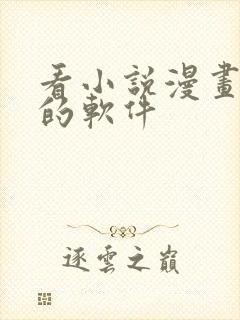 看小說漫畫
的軟件
逐雲之巔